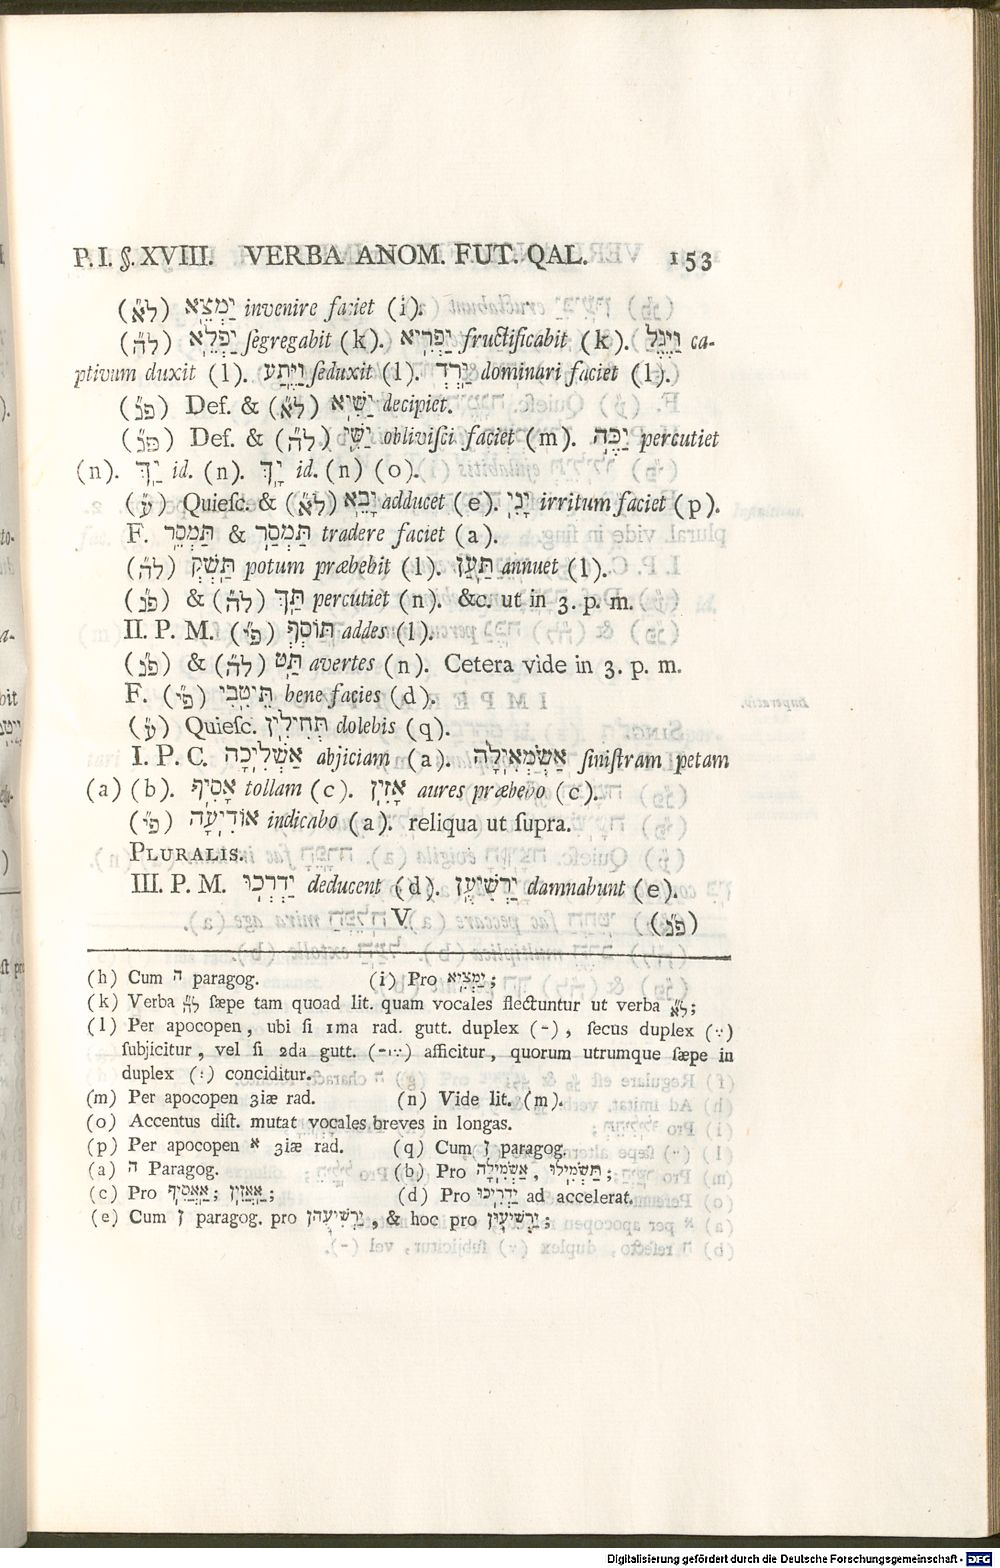 P. I. §. XVIII. VERBA ANOM. FUT. QAL. 153
(ל״א) יַמְצֵא invenire faciet (i).
(ל״ה) יַפְלֵא ſegregabit (k). יַפְרִיא fructificabit (k). וַיֶּגֶל ca-
ptivum duxit (l). וַיֶּתַע ſeduxit (l). יַרְדְּ dominari faciet (l).
(פ״נ) Def. & (ל״א) יַשִּׁיא decipiet.
(פ״נ) Def. & (ל״ה) יַשִּׁי obliviſci faciet (m). יַכֶּה percutiet
(n). יַךְ id. (n). יָךְ id. (n) (o).
(ע״ו) Quieſc. & (ל״א) יָבֵא adducet (e). יָנִי irritum faciet (p).
F. תַּמְסֵר & תַּמְסַר tradere faciet (a).
(ל״ה) תַּשְׁקְ potum præbebit (l). תַּעַן annuet (l).
(פ״נ) & (ל״ה) תַּךְ percutiet (n). &c. ut in 3. p. m.
II. P. M. (פ״י) תּוֹסְףְ addes (l).
(פ״נ) & (ל״ה) תַּט avertes (n). Cetera vide in 3. p. m.
F. (פ״י) תֵּיטְבִי bene facies (d).
(ע״ו) Quieſc. תְּחִילִין dolebis (q).
I. P. C. אַשְׁלִיכָה abjiciam (a). אַשְׂמְאִילָה ſiniſtram petam
(a) (b). אָסִיף tollam (c). אָזִין aures præbebo (c).
(פ״י) אוֹדִיעָה indicabo (a). reliqua ut ſupra.
PLURALIS.
III. P. M. יַדְרְכוּ deducent (d). יַרְשִׁיעֻן damnabunt (e).
V (פ״נ)
(h) Cum ה paragog. (i) Pro יַמְצִיא;
(k) Verba ל״ה ſæpe tam quoad lit. quam vocales flectuntur ut verba ל״א;
(l) Per apocopen, ubi ſi 1ma rad. gutt. duplex (-), ſecus duplex (ֶ)
ſubjicitur, vel ſi 2da gutt. (-ֶ) afficitur, quorum utrumque ſæpe in
duplex (:) conciditur.
(m) Per apocopen 3iæ rad. (n) Vide lit. (m).
(o) Accentus diſt. mutat vocales breves in longas.
(p) Per apocopen א 3iæ rad. (q) Cum ן paragog.
(a) ה Paragog. (b) Pro אַשְׂמִילָה, תַּשְׂמִילוּ;
(c) Pro אַאֲסִיף; אַאֲזִין; (d) Pro יַדְרִיכוּ ad accelerat.
(e) Cum ן paragog. pro יַרְשִׁיעֻהוּ, & hoc pro יַרְשִׁיעוּן;